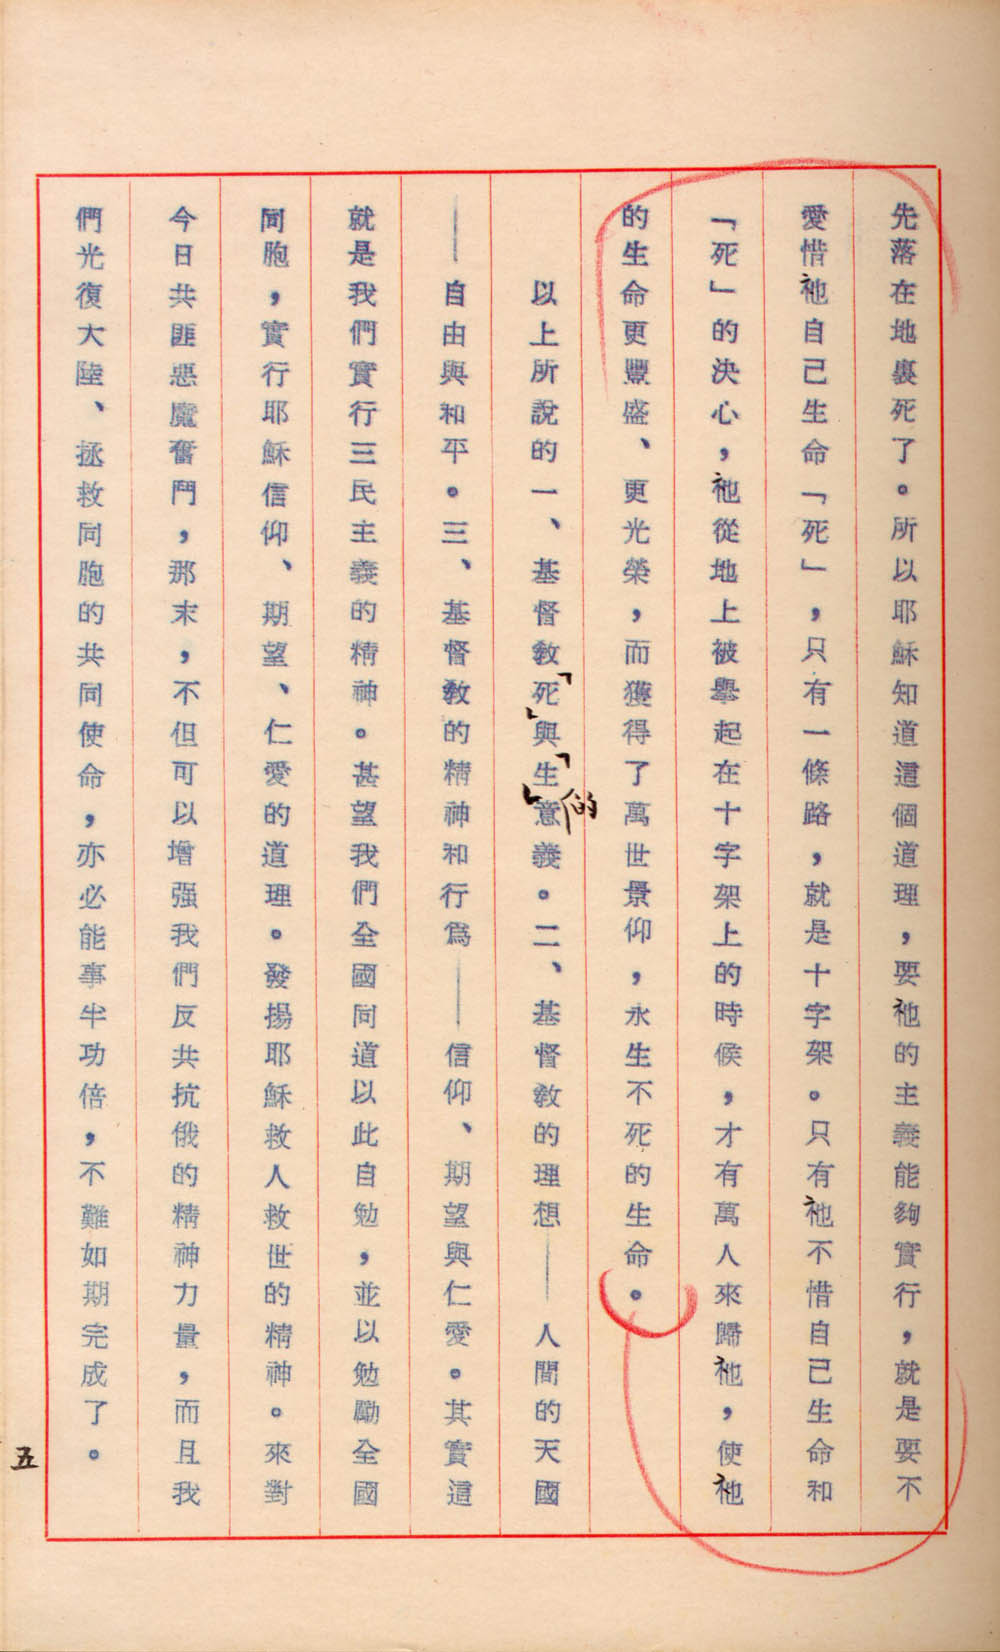 先落在地裏死了。所以耶穌知道這個道理，要祂的主義能夠實行，就是要不
愛惜祂自己生命「死」，只有一條路，就是十字架。只有祂不惜自己生命和
「死」的決心，祂從地上被舉起在十字架上的時候，才有萬人來歸祂，使祂
的生命更豐盛、更光榮，而獲得了萬世景仰，永生不死的生命。
以上所說的一、基督教「死」與「生」的意義。二、基督教的理想——人間的天國
——自由與和平。三、基督教的精神和行為——信仰、期望與仁愛。其實這
就是我們實行三民主義的精神。甚望我們全國同道以此自勉，並以勉勵全國
同胞，實行耶穌信仰、期望、仁愛的道理。發揚耶穌救人救世的精神。來對
今日共匪惡魔奮鬥，那末，不但可以增强我們反共抗俄的精神力量，而且我
們光復大陸、拯救同胞的共同使命，亦必能事半功倍，不難如期完成了。
五